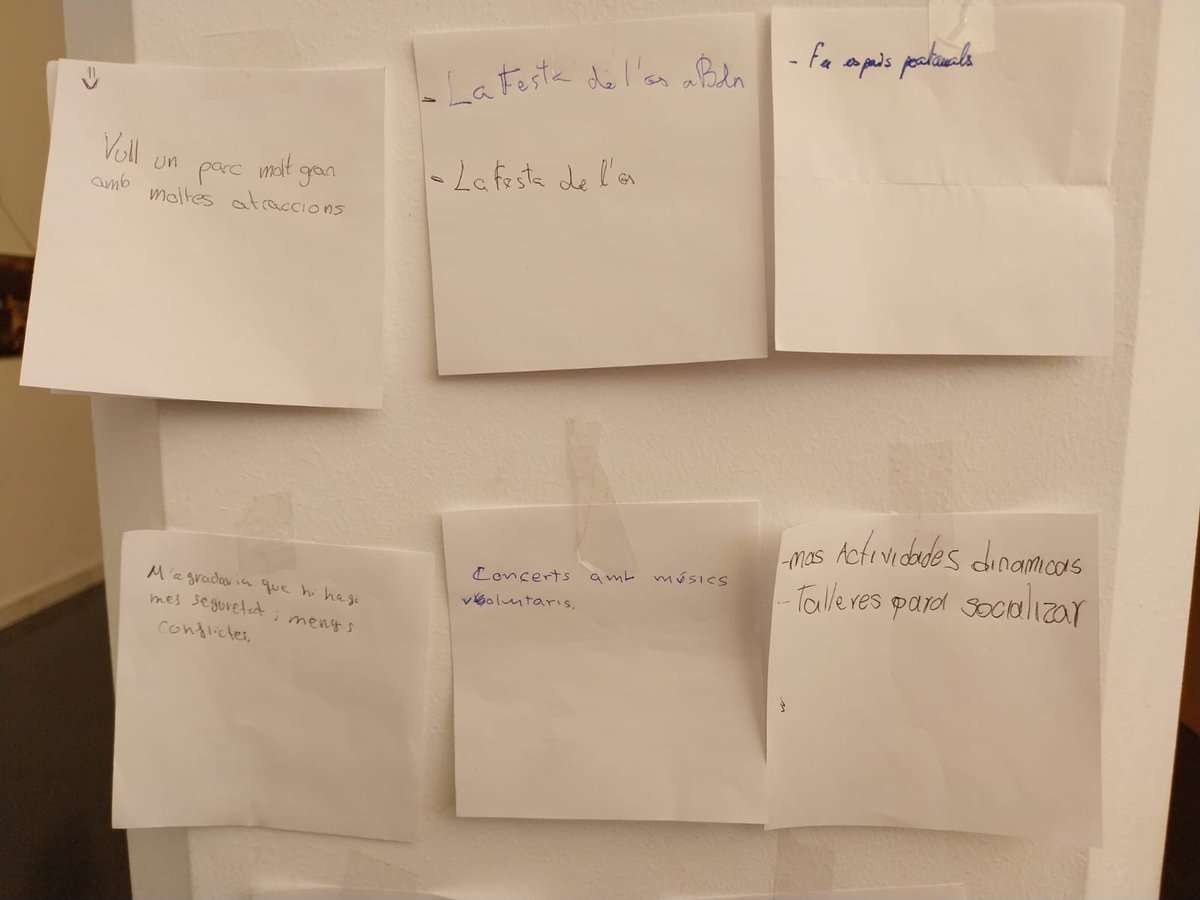 Vull un parc molt gran
amb moltes atraccions
- La Festa de l'os a Bdn
- La Festa de l'os
- Fer espais
M'agradaria que hi hagi
mes seguretat i menys
conflictes.
Concerts amb músics
voluntaris.
-mas Actividades dinamicas
-Talleres para socializar